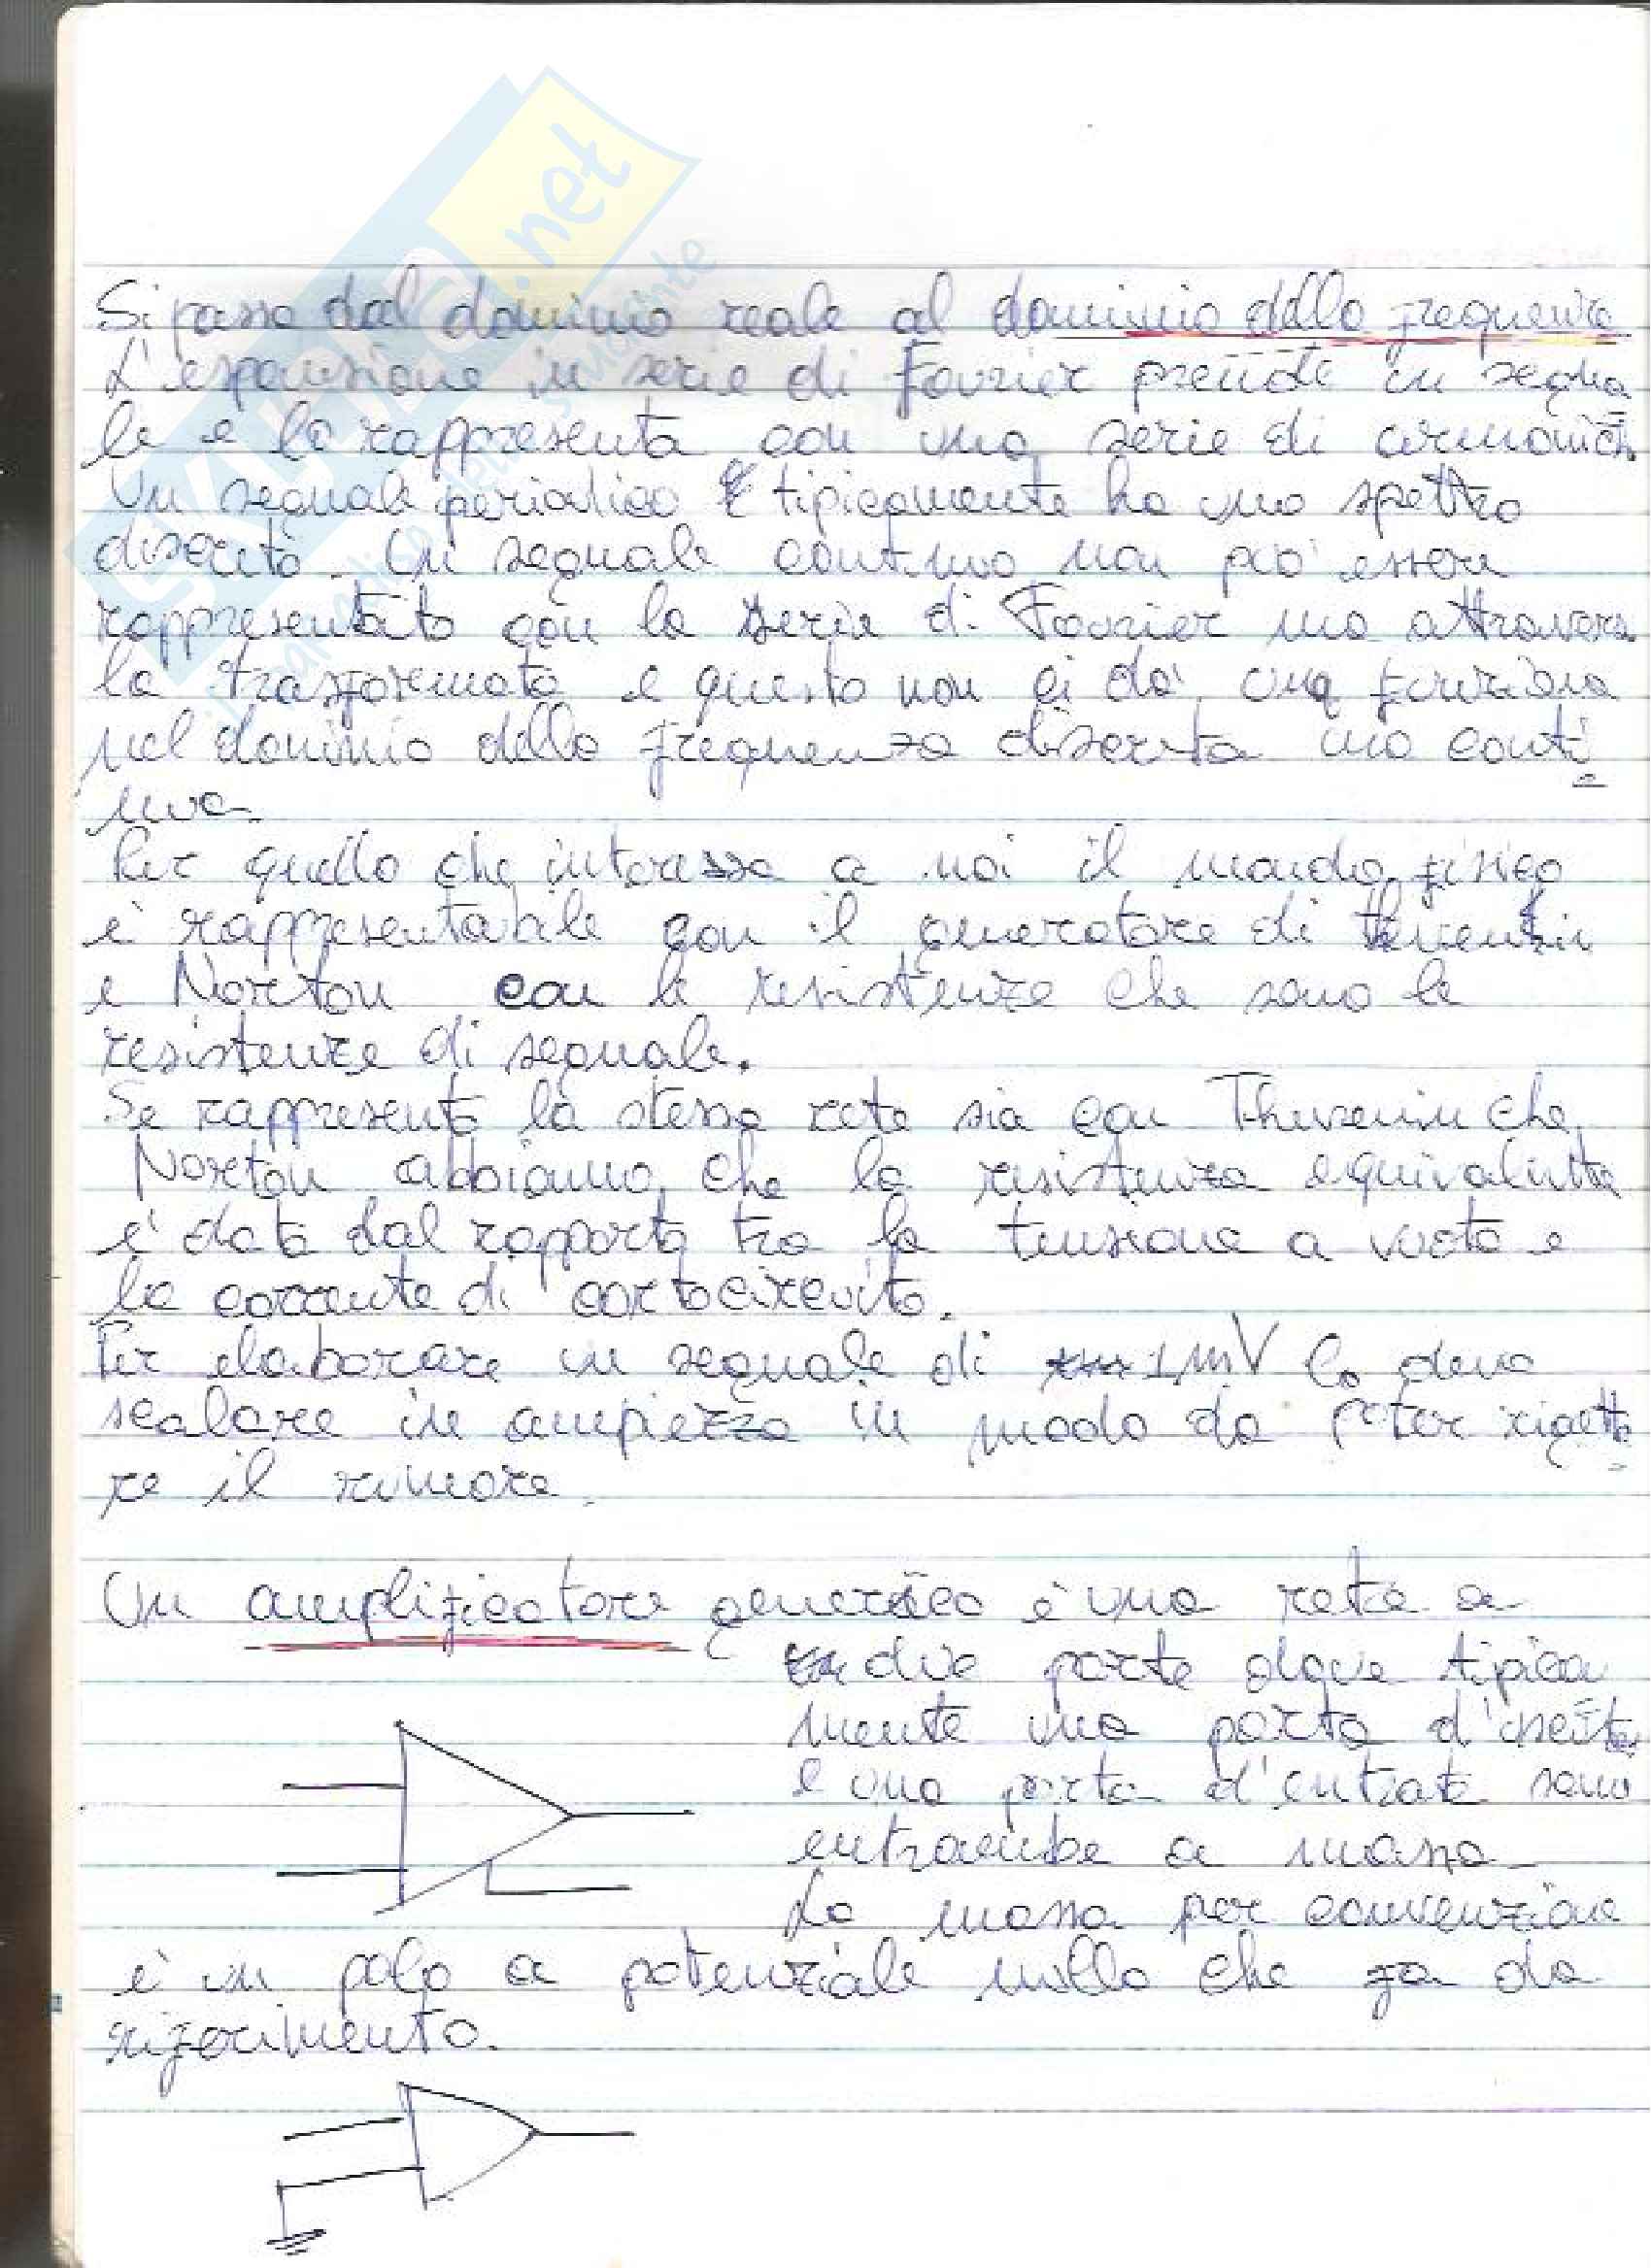 Si passa dal dominio reale al dominio della frequenza
L'espansione in serie di Fourier prende un segna
le e lo rappresenta con una serie di armonich
Un segnale periodico tipicamente ha uno spettro
discreto. Un segnale continuo non può essere
rappresentato con la serie di Fourier ma attravers
la trasformata e questo non ci dà una funzione
nel dominio della frequenza discreta ma conti
nua.
Per quello che interessa a noi il mondo fisico
è rappresentabile con il generatore di
e Norton con le resistenze che sono le
resistenze di segnale.
Se rappresento la stessa rete sia con Thevenin che
Norton abbiamo che la resistenza equivalente
è data dal rapporto tra la tensione a vuoto e
la corrente di cortocircuito.
Per elaborare un segnale di 1mV lo devo
scalare in ampiezza in modo da poter rigetta
re il rumore.
Un amplificatore generico è una rete a
due porte dove tipica
mente una porta d'uscita
e una porta d'entrata sono
entrambe a massa.
La massa per convenzione
è un polo a potenziale nullo che fa da
riferimento.
skuola.net
il paradiso dello studente